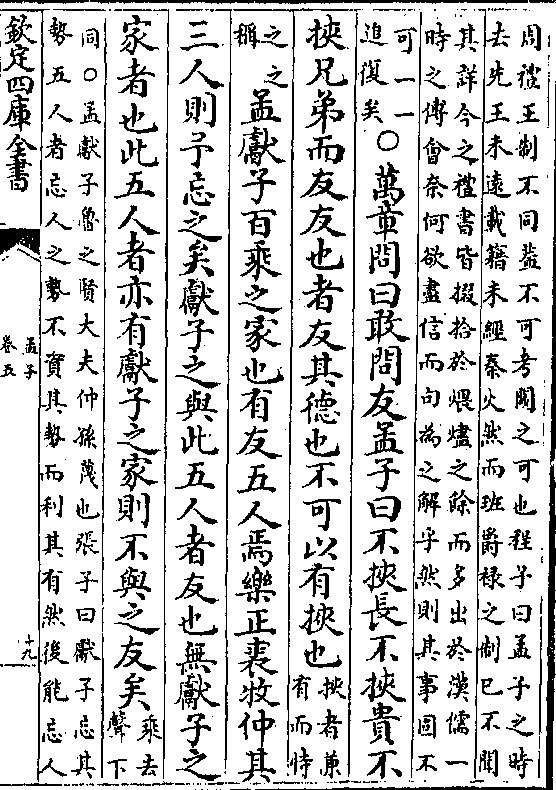 周禮王制不同葢不可考闕之可也程子曰孟子之時
去先王未遠載籍未經秦火然而班爵祿之制已不聞
其詳今之禮書皆掇拾於煨燼之餘而多出於漢儒一
時之傅會奈何欲盡信而句為之解乎然則其事固不
可一一
追復矣
○萬章問曰敢問友孟子曰不挾長不挾貴不
挾兄弟而友友也者友其德也不可以有挾也
挾者兼
有而恃
之之
稱
孟獻子百乘之家也有友五人焉樂正裘牧仲其
三人則予忘之矣獻子之與此五人者友也無獻子之
家者也此五人者亦有獻子之家則不與之友矣
乘去
聲下
同○孟獻子魯之賢大夫仲孫蔑也張子曰獻子忘其
勢五人者忘人之勢不資其勢而利其有然後能忘人
欽定四庫全書
孟子
卷五
十九